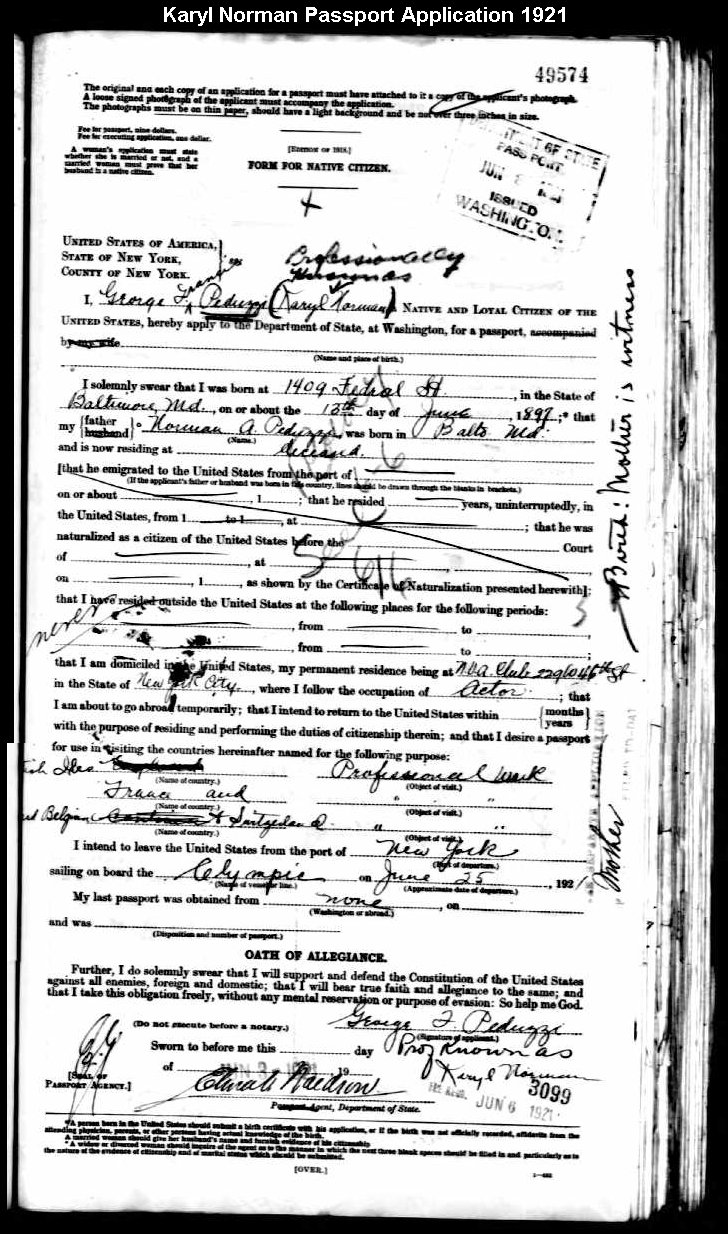 Karyl Norman Passport Application 1921
49574
The original and each copy of an application for a passport must have attached to it a copy of the applicant's photograph.
A loose signed photograph of the applicant must accompany the application.
The photographs must be on thin paper, should have a light background and be not over three inches in size.
Fee for passport, nine dollars.
Fee for executing application, one dollar.
A woman's application must state
whether she is married or not, and a
married woman must prove that her
husband is a native citizen.
[EDITION OF 1918.]
FORM FOR NATIVE CITIZEN.
DEPARTMENT OF STATE
PASSPORT
JUN
ISSUED
WASHINGTON
UNITED STATES OF AMERICA,
STATE OF NEW YORK,
COUNTY OF NEW YORK.
ss
Professionally
Known as
Francis
I, George F. Peduzzi (Karyl Norman), NATIVE AND LOYAL CITIZEN OF THE
UNITED STATES, hereby apply to the Department of State, at Washington, for a passport, accompanied
by my wife
(Name and place of birth.)
I solemnly swear that I was born at 1409 Fedral St, in the State of
Baltimore Md., on or about the 13th day of June, 1897;* that
my {father husband} Norman A. Peduzzi, was born in Balto Md.
(Name.)
and is now residing at deceased.
[that he emigrated to the United States from the port of
(If the applicant's father or husband was born in this country, lines should be drawn through the blanks in brackets.)
on or about , 1 ; that he resided years, uninterruptedly, in
the United States, from 1 to 1 , at ; that he was
naturalized as a citizen of the United States before the Court
of , at ,
on , 1 , as shown by the Certificate of Naturalization presented herewith];
that I have resided outside the United States at the following places for the following periods:
never
, from to ,
, from to ;
that I am domiciled in the United States, my permanent residence being at N.V.A. Club 229 W 46th St
in the State of New York City, where I follow the occupation of Actor ; that
I am about to go abroad temporarily; that I intend to return to the United States within {months years}
with the purpose of residing and performing the duties of citizenship therein; and that I desire a passport
for use in visiting the countries hereinafter named for the following purpose:
Isles Professional Work
(Name of country.) (Object of visit.)
France and " "
(Name of country.) (Object of visit.)
Belgium & Switzerland " "
(Name of country.) (Object of visit.)
I intend to leave the United States from the port of New York
(Port of departure.)
sailing on board the Olympic on June 25, 1921
(Name of vessel or line.) (Approximate date of departure.)
My last passport was obtained from none , on
(Washington or abroad.)
and was
(Disposition and number of passport.)
OATH OF ALLEGIANCE.
Further, I do solemnly swear that I will support and defend the Constitution of the United States
against all enemies, foreign and domestic; that I will bear true faith and allegiance to the same; and
that I take this obligation freely, without any mental reservation or purpose of evasion: So help me God.
George F Peduzzi
(Do not execute before a notary.) (Signature of applicant.)
Prof Known as
Karyl Norman
Sworn to before me this day
of JUN 3 1921 19
[SEAL OF
PASSPORT AGENCY.]
Passport Agent, Department of State.
3099
JUN 6 1921
*A person born in the United States should submit a birth certificate with his application, or if the birth was not officially recorded, affidavits from the
attending physician, parents, or other persons having actual knowledge of the birth.
A married woman should give her husband's name and furnish evidence of his citizenship.
[OVER.]
Birth: Mother is witness
Mother